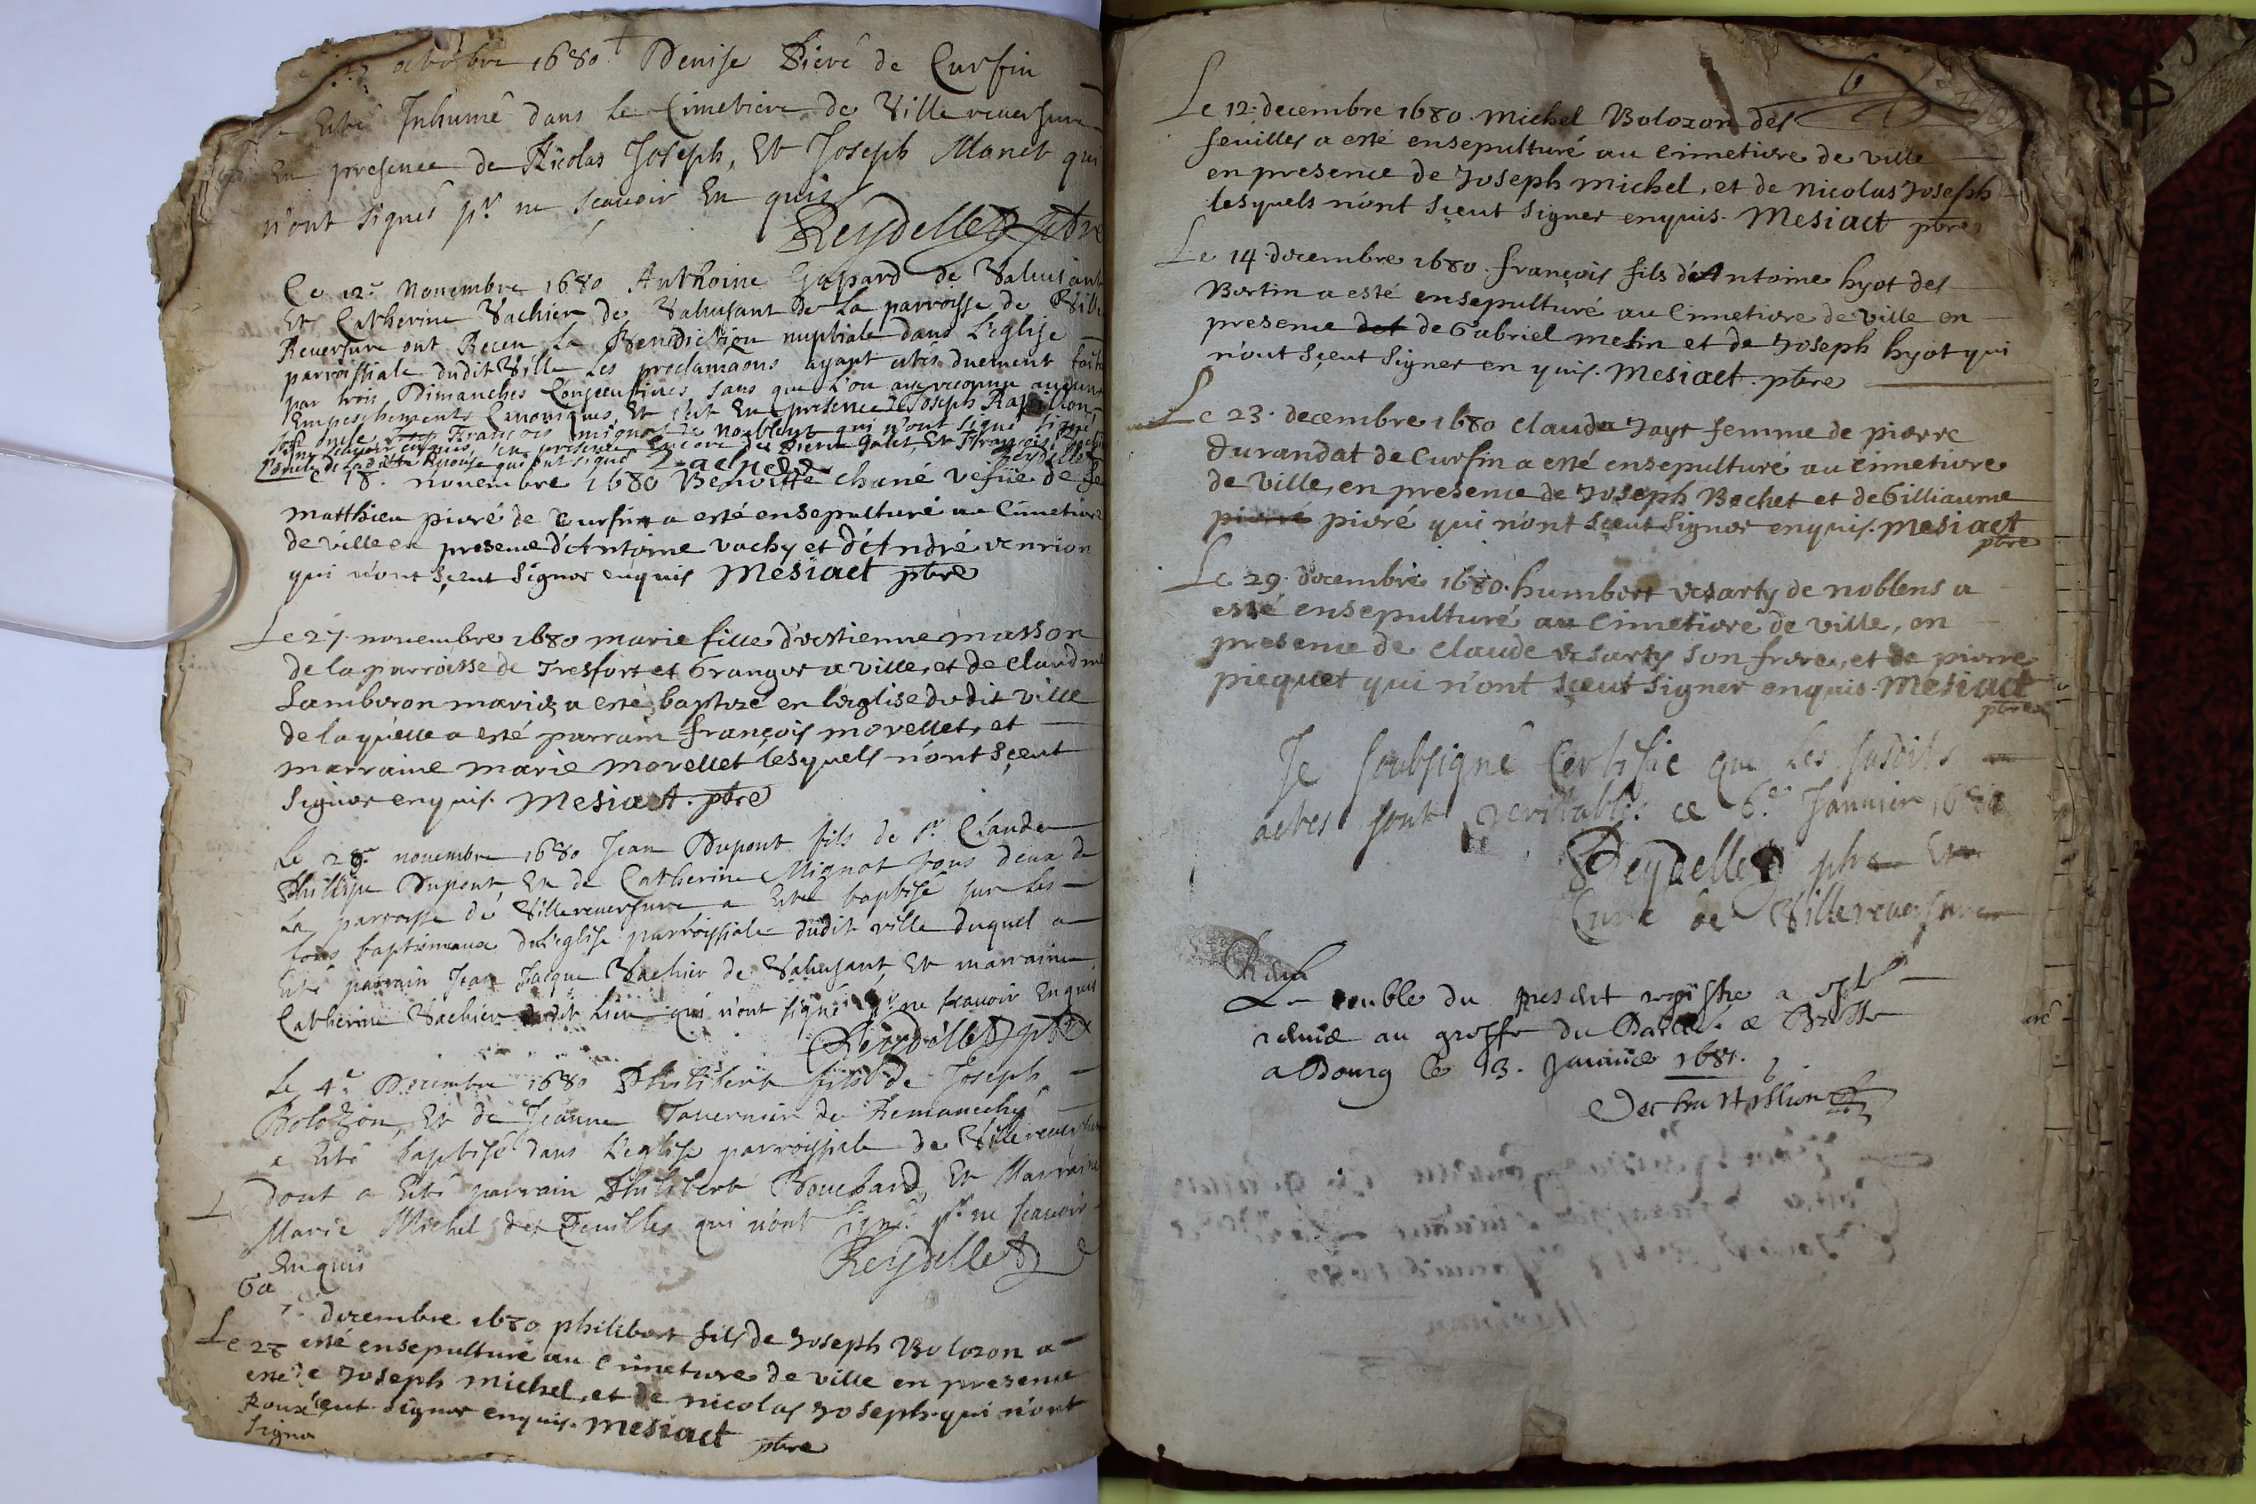 octobre 1680 Denise Piéré de Curfin
a esté Inhumé dans le Cimetiere de Villereuersure
En presence de Nicolas Joseph, Et Joseph Manet qui
n'ont signés pr. ne scauoir En quis
Reydellet ptre
Ce 12e Nouembre 1680 Anthoine Gaspard de Valuisant
Et Catherine Vachier de Valuisant De La parroisse de Ville
Reuersure ont Receu La Benediction nuptiale dans L'eglise
parroissiale dudit Ville Les proclamaons ayant estés duement faite
par trois Dimanches Consecutiues sans que L'on aye reconnu aucuns
Empeschements Canoniques, Et c'est En presence de Joseph Rauillon
François mignot de noblens qui n'ont signé
18. nouembre 1680 Benoitte chané vefue de
matthieu pieré de Curfin a esté ensepulturé au Cimetiere
de ville en presence d'Antoine vachy et d'André venrion
qui n'ont sçeut signer enquis Mesiact ptre
Le 27. nouembre 1680 marie fille d'estienne masson
de la parroisse de Tresfort et Granger a ville, et de claudine
Lamberon mariés a esté baptizé en l'eglise dudit ville
de laquelle a esté parrain françois morellet, et
marraine marie morellet lesquels n'ont sçeut
signer enquis. Mesiact. ptre
Le 28e nouembre 1680 Jean Dupont fils de Sr. Claude
Phillipe Dupont Et de Catherine Mignot tous deux de
La parroisse de Villereuersure a Esté baptisé sur Les
fons baptismaux de L'eglise parroissiale dudit ville duquel a
Esté parrain Jean Jacque Vachier de Valuisant, Et marraine
Catherine Vachier dudit Lieu qui n'ont signé pr. ne scauoir Enquis
Reydellet ptre
Le 4e Decembre 1680 Philibert fils de Joseph
Bolozon, Et de Jeanne Tauernier de Remanechy
a Esté baptisé dans L'eglise parroissiale de Villereuersure
dont a Esté parrain Philibert Bouchard, Et Marraine
Marie Michel des Feuilles qui n'ont signé pr. ne scauoir
Enquis
Reydellet
decembre 1680 philibert fils de Joseph Bolozon a
esté ensepulturé au Cimetiere de ville en presence
de Joseph michel, et de nicolas Joseph qui n'ont
sçeut signer enquis. Mesiact ptre
6
Le 12. decembre 1680. Michel Bolozon des
feuilles a esté ensepulturé au Cimetiere de ville
en presence de Joseph michel, et de Nicolas Joseph
lesquels n'ont sçeut signer enquis. Mesiact ptre
Le 14. decembre 1680. françois fils d'Antoine hyot des
Bertin a esté ensepulturé au Cimetiere de ville en
presence det de Gabriel mesin et de Joseph hyot qui
n'ont sçeut signer en quis. Mesiact. ptre
Le 23. decembre 1680 clauda Jayr femme de pierre
durandat de Curfin a esté ensepulturé au Cimetiere
de ville, en presence de Joseph Bechet et de Gilliaume
pierré pieré qui n'ont sçeut signer enquis. Mesiact
ptre
Le 29. decembre 1680. humbert desarty de noblens a
esté ensepulturé au Cimetiere de ville, en
presence de claude desarty son frere, et de pierre
piequet qui n'ont sçeut signer enquis. Mesiact
ptre
Je soubsigné Certifie que Les susdits
actes sont veritables ce 6e. Januier 168
Reydellet ptre Et
Curé de Villereuersure
Le double du present registre a esté
remis au greffe du Bailliage de Bresse
a Bourg le 13. Januier 1681.